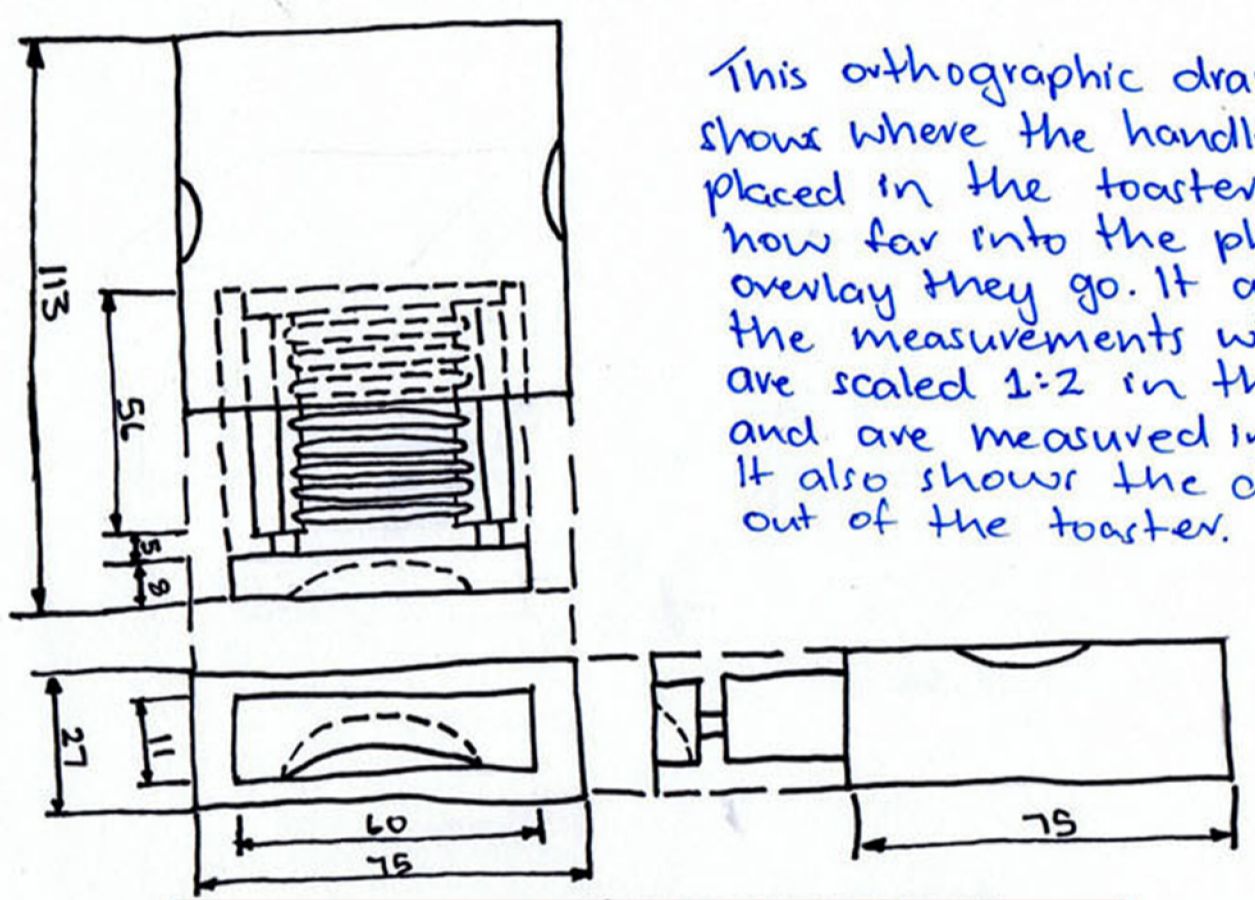 This orthographic dra
shows where the handl
placed in the toaster
how far into the pl
overlay they go. It a
the measurements w
are scaled 1:2 in th
and are measured in
It also shows the o
out of the toaster.
113
56
5
8
27
11
60
75
75